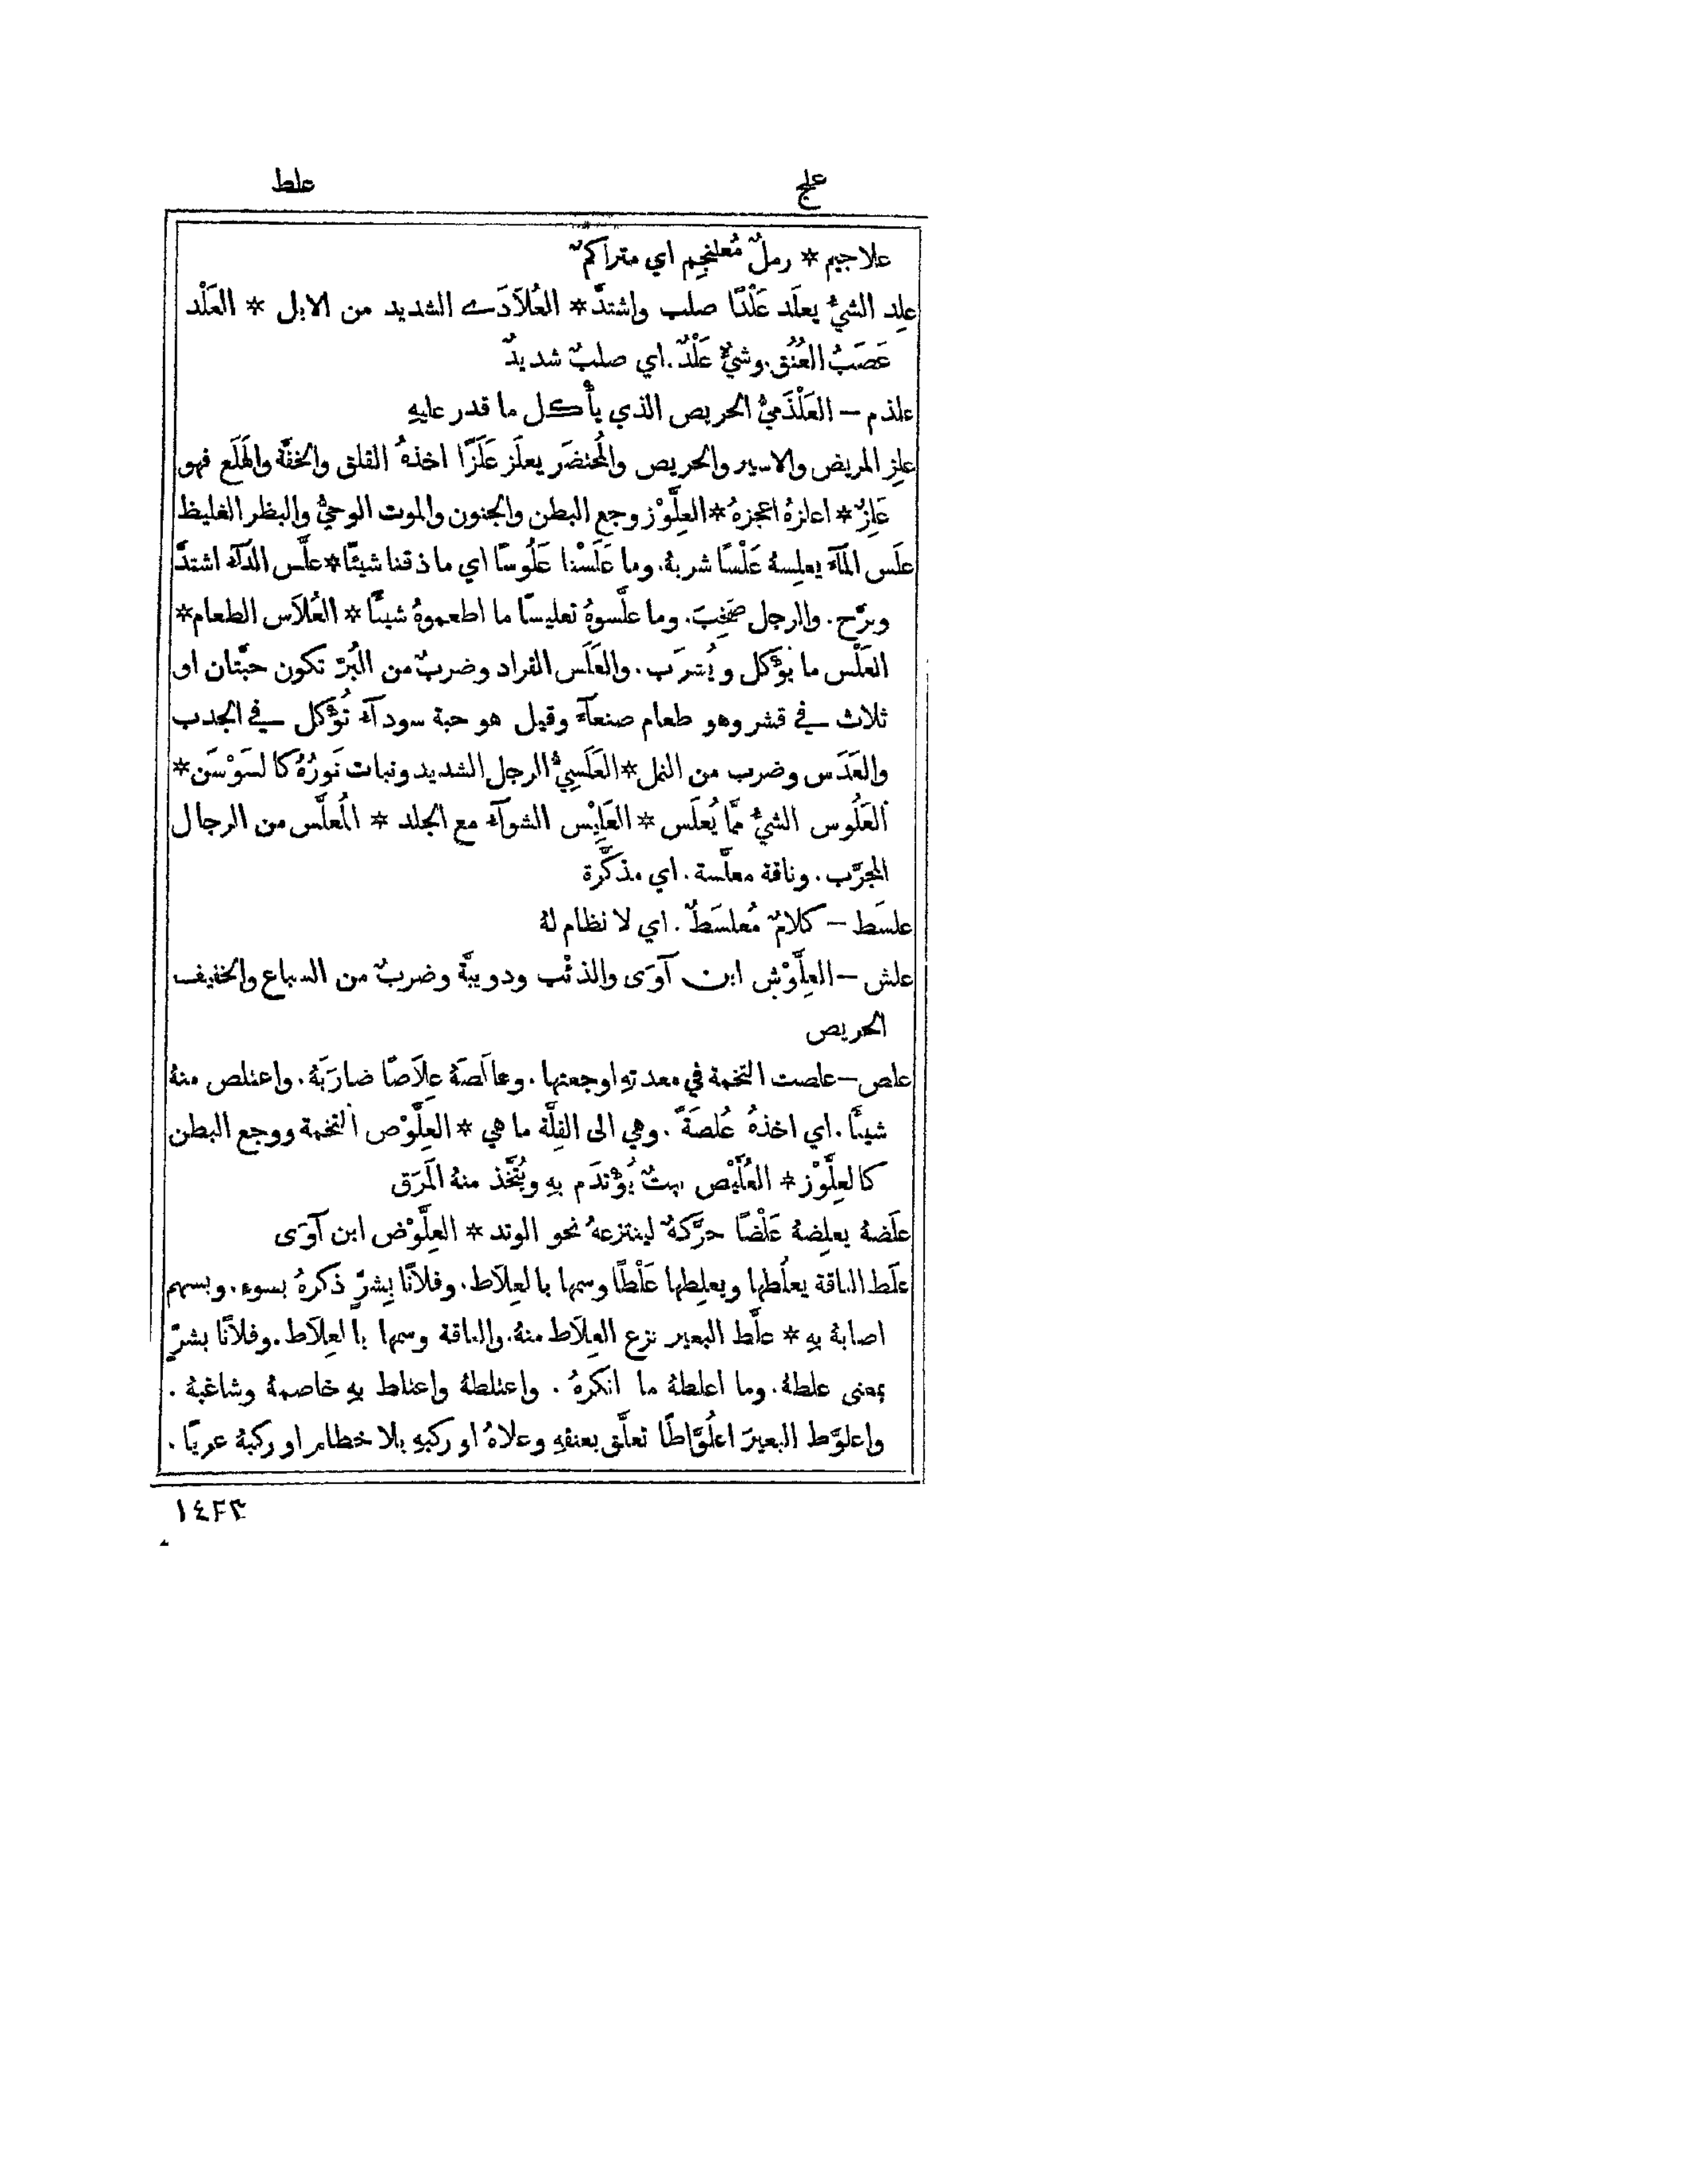 علج علط
علاجيم * رملٌ مُعلنجِم اي متراكمٌ
علِد الشيُّ يعلَد عَلْدًا صلب واشتدَّ * العُلاَدَے الشديد من الابل * العَلْد
عَصَبُ العُنُق. وشيٌّ عَلْدٌ. اي صلبٌ شديدٌ
علذم – العَلْذَميُّ الحريص الذي يأْكل ما قدر عليهِ
علِز المريض والاسير والحريص والمُحتضَر يعلَز عَلَزًا اخذهُ القلق والخفَّة والهَلَع فهو
عَلِزٌ * اعلزهُ اعجزهُ * العِلَّوْز وجع البطن والجنون والموت الوحيُّ والبظر الغليظ
علَس المآءَ يعلِسهُ عَلْسًا شربهُ. وما عَلَسْنا عَلُوسًا اي ما ذقنا شيئًا * علَّس الدآءُ اشتدَّ
وبرَّح. والرجل صَخِبَ. وما علَّسوهُ تعليسًا ما اطعموهُ شيئًا * العُلاَس الطعام *
العَلْس ما يُؤْكل ويُشرَب. والعَلَس القراد وضربٌ من البُرّ تكون حبَّتان او
ثلاث في قشر وهو طعام صنعآءَ وقيل هو حبة سودآءُ تُؤْكل في الجدب
والعَدَس وضرب من النمل * العَلَسِيُّ الرجل الشديد ونبات نَورُهُ كالسَوْسَن *
العَلُوس الشيُّ ممَّا يُعلَس * العَلِيْس الشوآءُ مع الجلد * المُعلَّس من الرجال
المجرَّب. وناقة معلَّسة. اي مذكَّرة
علسَط – كلامٌ مُعلسَطٌ. اي لا نظام لهُ
علش – العِلَّوْش ابن آوَى والذئْب ودويبَّة وضربٌ من السباع والخفيف
الحريص
علص – علصت التخمة في معدتهِ اوجعتها. وعالَصَهُ عِلاَصًا ضارَبَهُ. واعتلص منهُ
شيئًا. اي اخذهُ عُلصَةً. وهي الى القِلَّة ما هي * العِلَّوْص التخمة ووجع البطن
كالعِلَّوْز * العُلَّيْص نبتٌ يُؤْتدَم بهِ ويُتَّخذ منهُ المَرَق
علَضهُ يعلِضهُ عَلْضًا حرَّكهُ لينتزعهُ نحو الوتد * العِلَّوْض ابن آوَى
علَط الناقة يعلُطها ويعلِطها عَلْطًا وسمها بالعِلاَط. وفلانًا بِشرٍّ ذكرهُ بسوءٍ. وبسهم
اصابهُ بهِ * علَّط البعير نزع العِلاَط منهُ. والناقة وسمها بالعِلاَط. وفلانًا بشرٍّ
بمعنى علطهُ. وما اعلطهُ ما انكرهُ. واعتلطهُ واعتلط بهِ خاصمهُ وشاغبهُ.
واعلوَّط البعيرَ اعلُوَّاطًا تعلَّق بعنقهِ وعلاهُ او ركبهِ بلا خطام او ركبهُ عريًا.
١٤٢٣